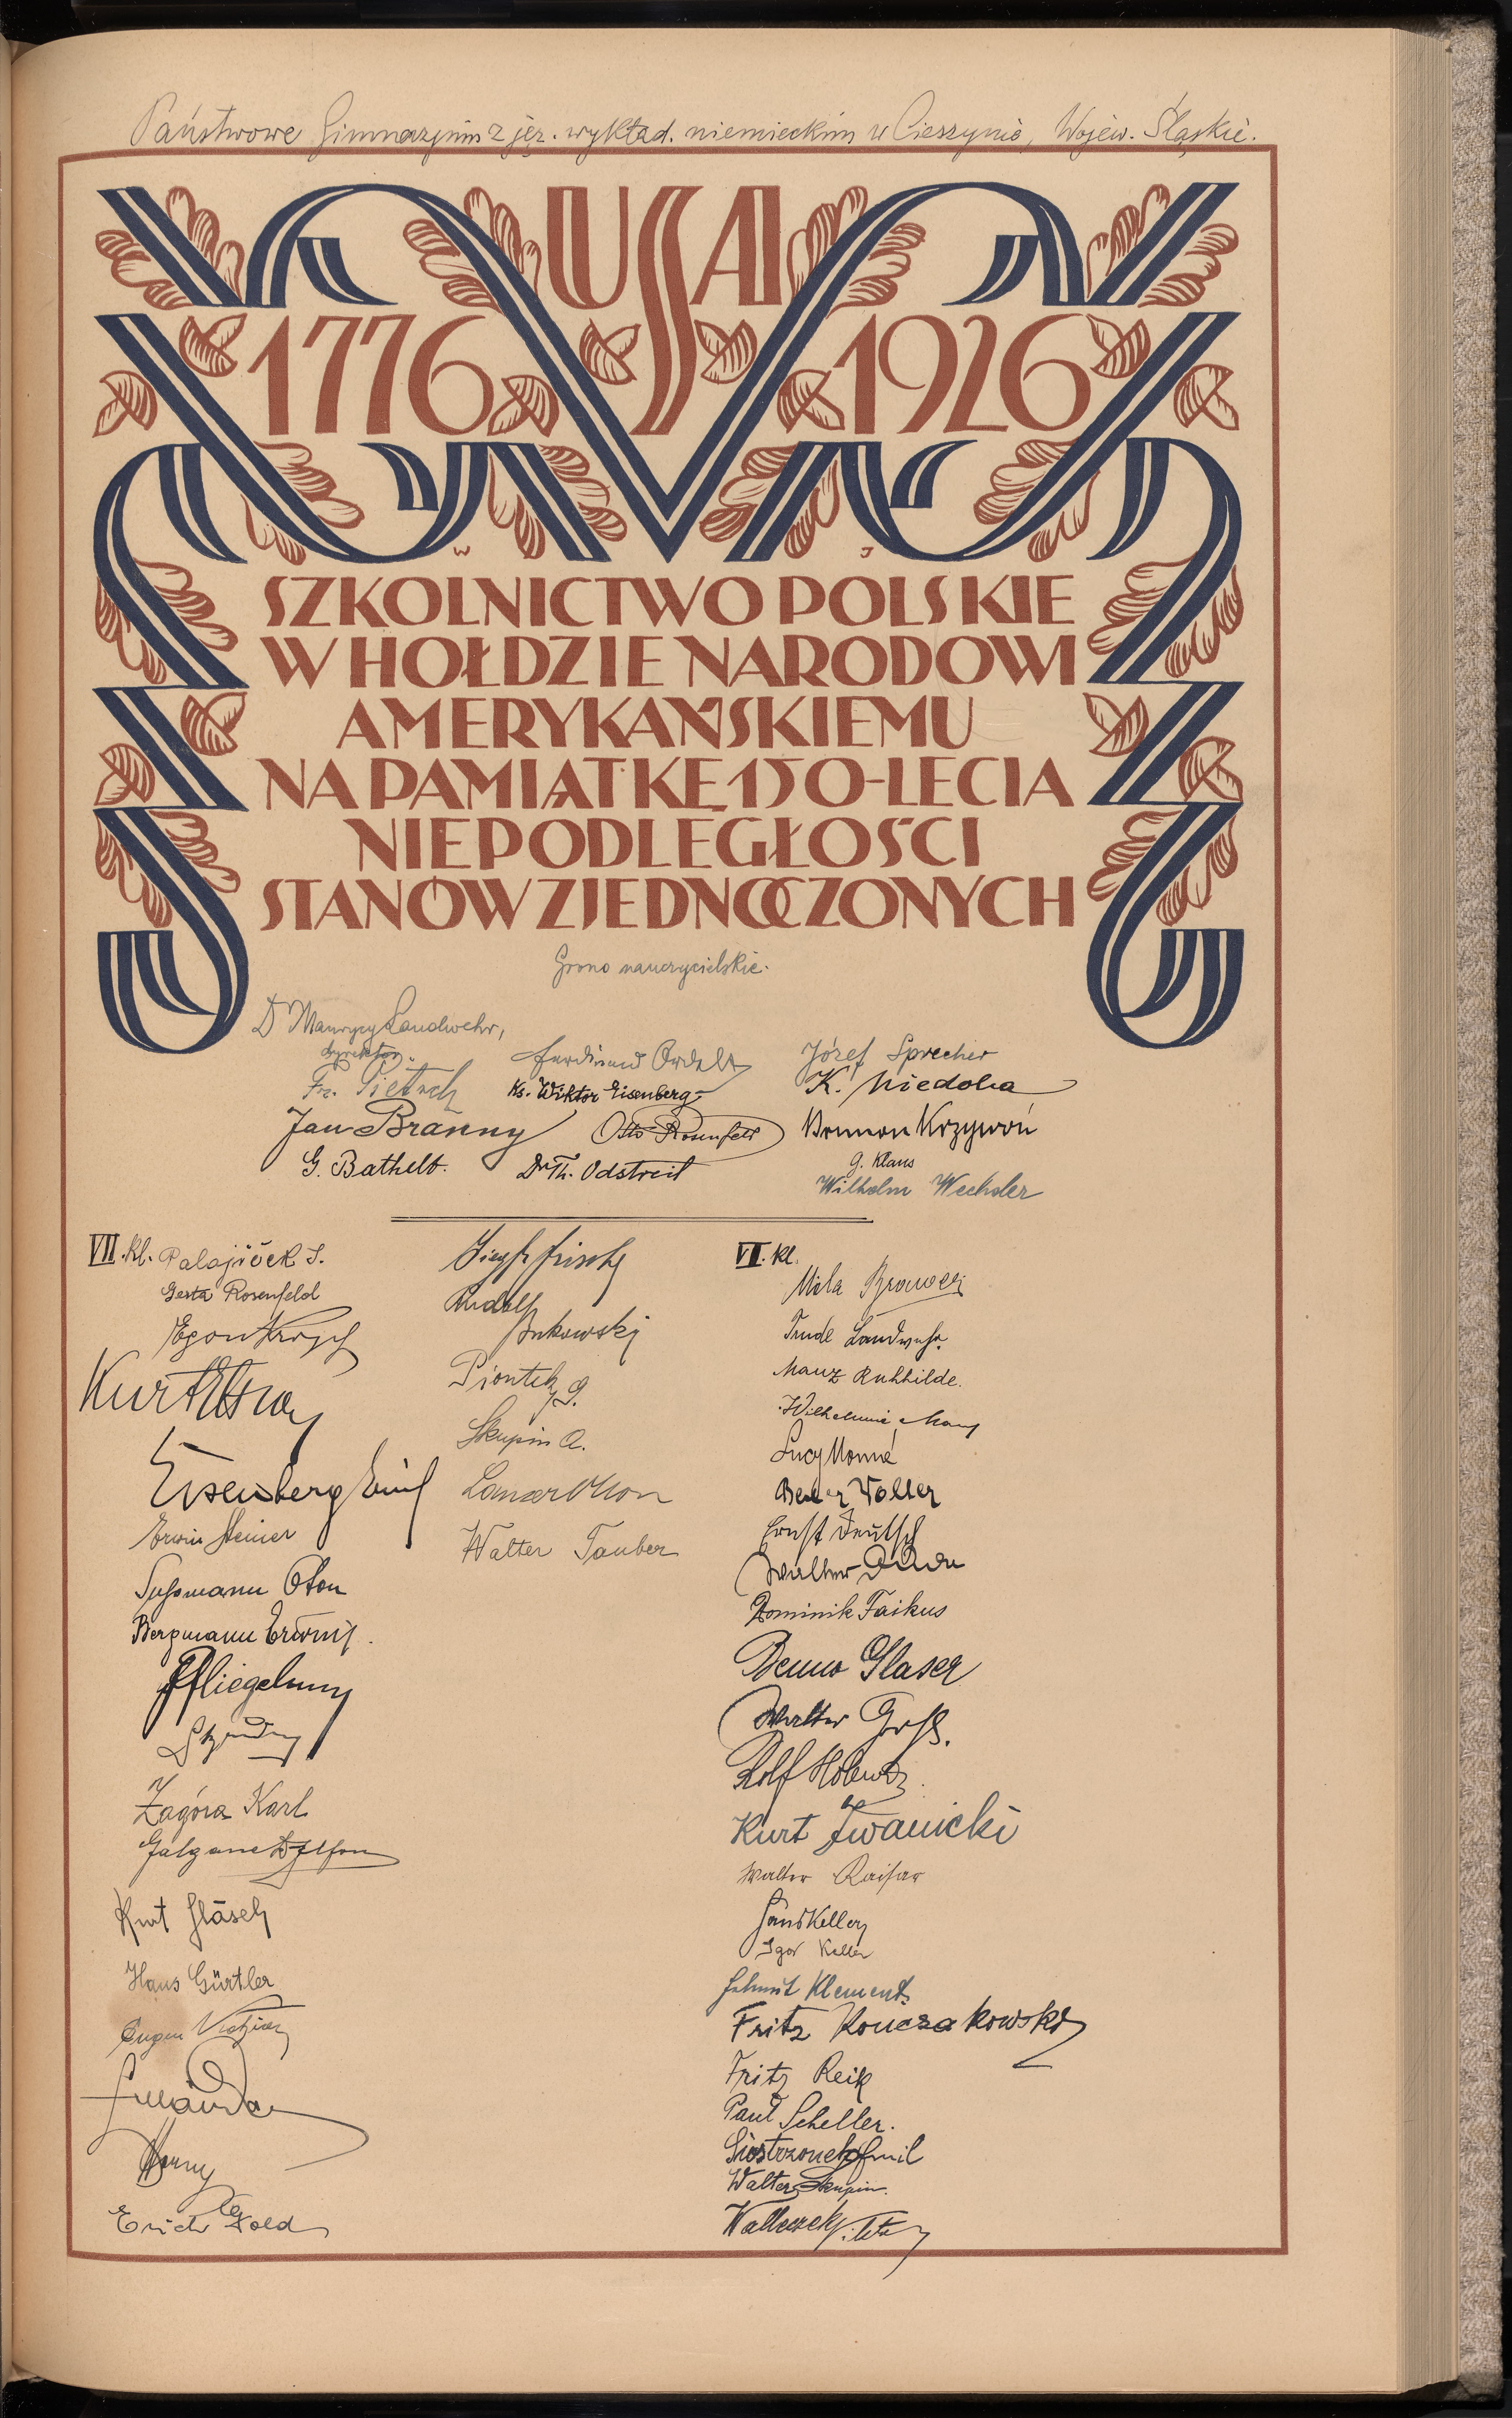 Państwowe Gimnazjum z jęz. wykład. niemieckim w Cieszynie, Wojew. Śląskie.
USA
1776 1926
W J
SZKOLNICTWO POLSKIE
W HOŁDZIE NARODOWI
AMERYKAŃSKIEMU
NA PAMIĄTKĘ 150-LECIA
NIEPODLEGŁOŚCI
STANÓW ZJEDNOCZONYCH
Grono nauczycielskie.
Dr Maurycy Landwehr,
dyrektor.
Fr. Pietsch
Jan Branny
G. Bathelt.
Ferdinand Ordelt
Ks. Wiktor Eisenberg
Otto Rosenfeld
Dr Th. Odstrcil
Józef Sprecher
K. Niedoba
Brunon Krzywoń
G. Klaus
Wilhelm Wechsler
VII. kl. Palajiček S.
Gerta Rosenfeld
Egon
Kurt
Eisenberg Emil
Erwin Steiner
Sussmann Oton
Bergmann Erwin
Zagóra Karl
Kurt Gläsel
Hans Gürtler
Eugen
Erich Gold
Rudolf
Bukowski
Piontek G.
Skupin A.
Lanzer Otton
Walter Tauber
VI. kl.
Mila
Trude Landwehr
Manz Ruhhilde.
Wilhelmine
Lucy Monné
Walter
Ernst Deutsch
Walter
Dominik Faikus
Benno Glaser
Walter Gross.
Rolf
Kurt Iwanicki
Walter Kaisar
Hans Keller
Igor Keller
Helmut Klement
Fritz Konczakowski
Fritz Reik
Paul Scheller.
Siostrzonek Emil
Walter Skupin.
Walleczek